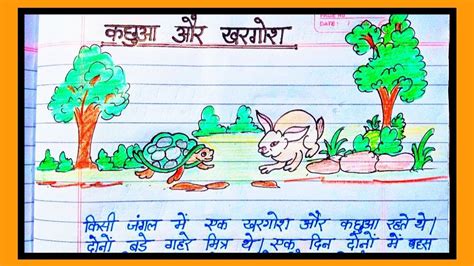 कछुआ और खरगोश
किसी जंगल में एक खरगोश और कछुआ रहते थे।
दोनों बडे गहरे मित्र थे। एक दिन दोनों में बहस